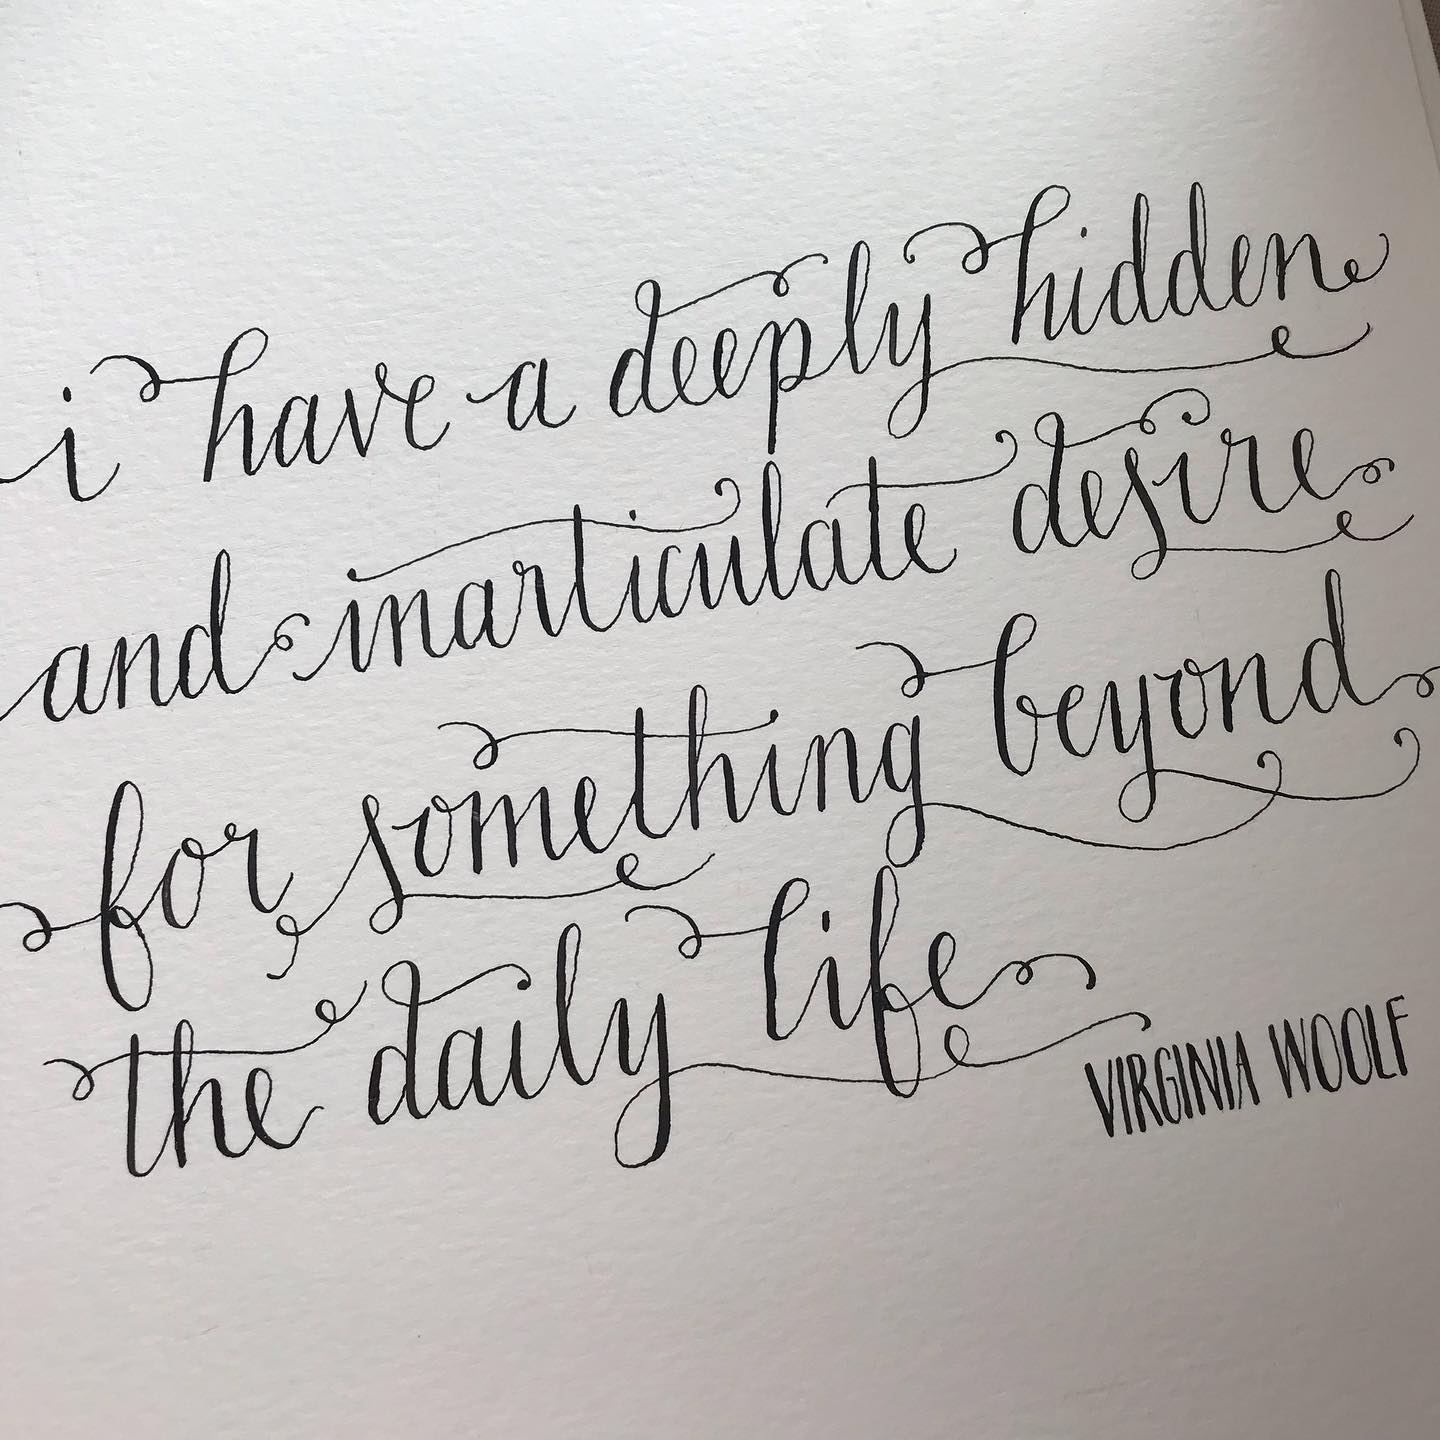 i have a deeply hidden
and inarticulate desire
for something beyond
the daily life
VIRGINIA WOOLF